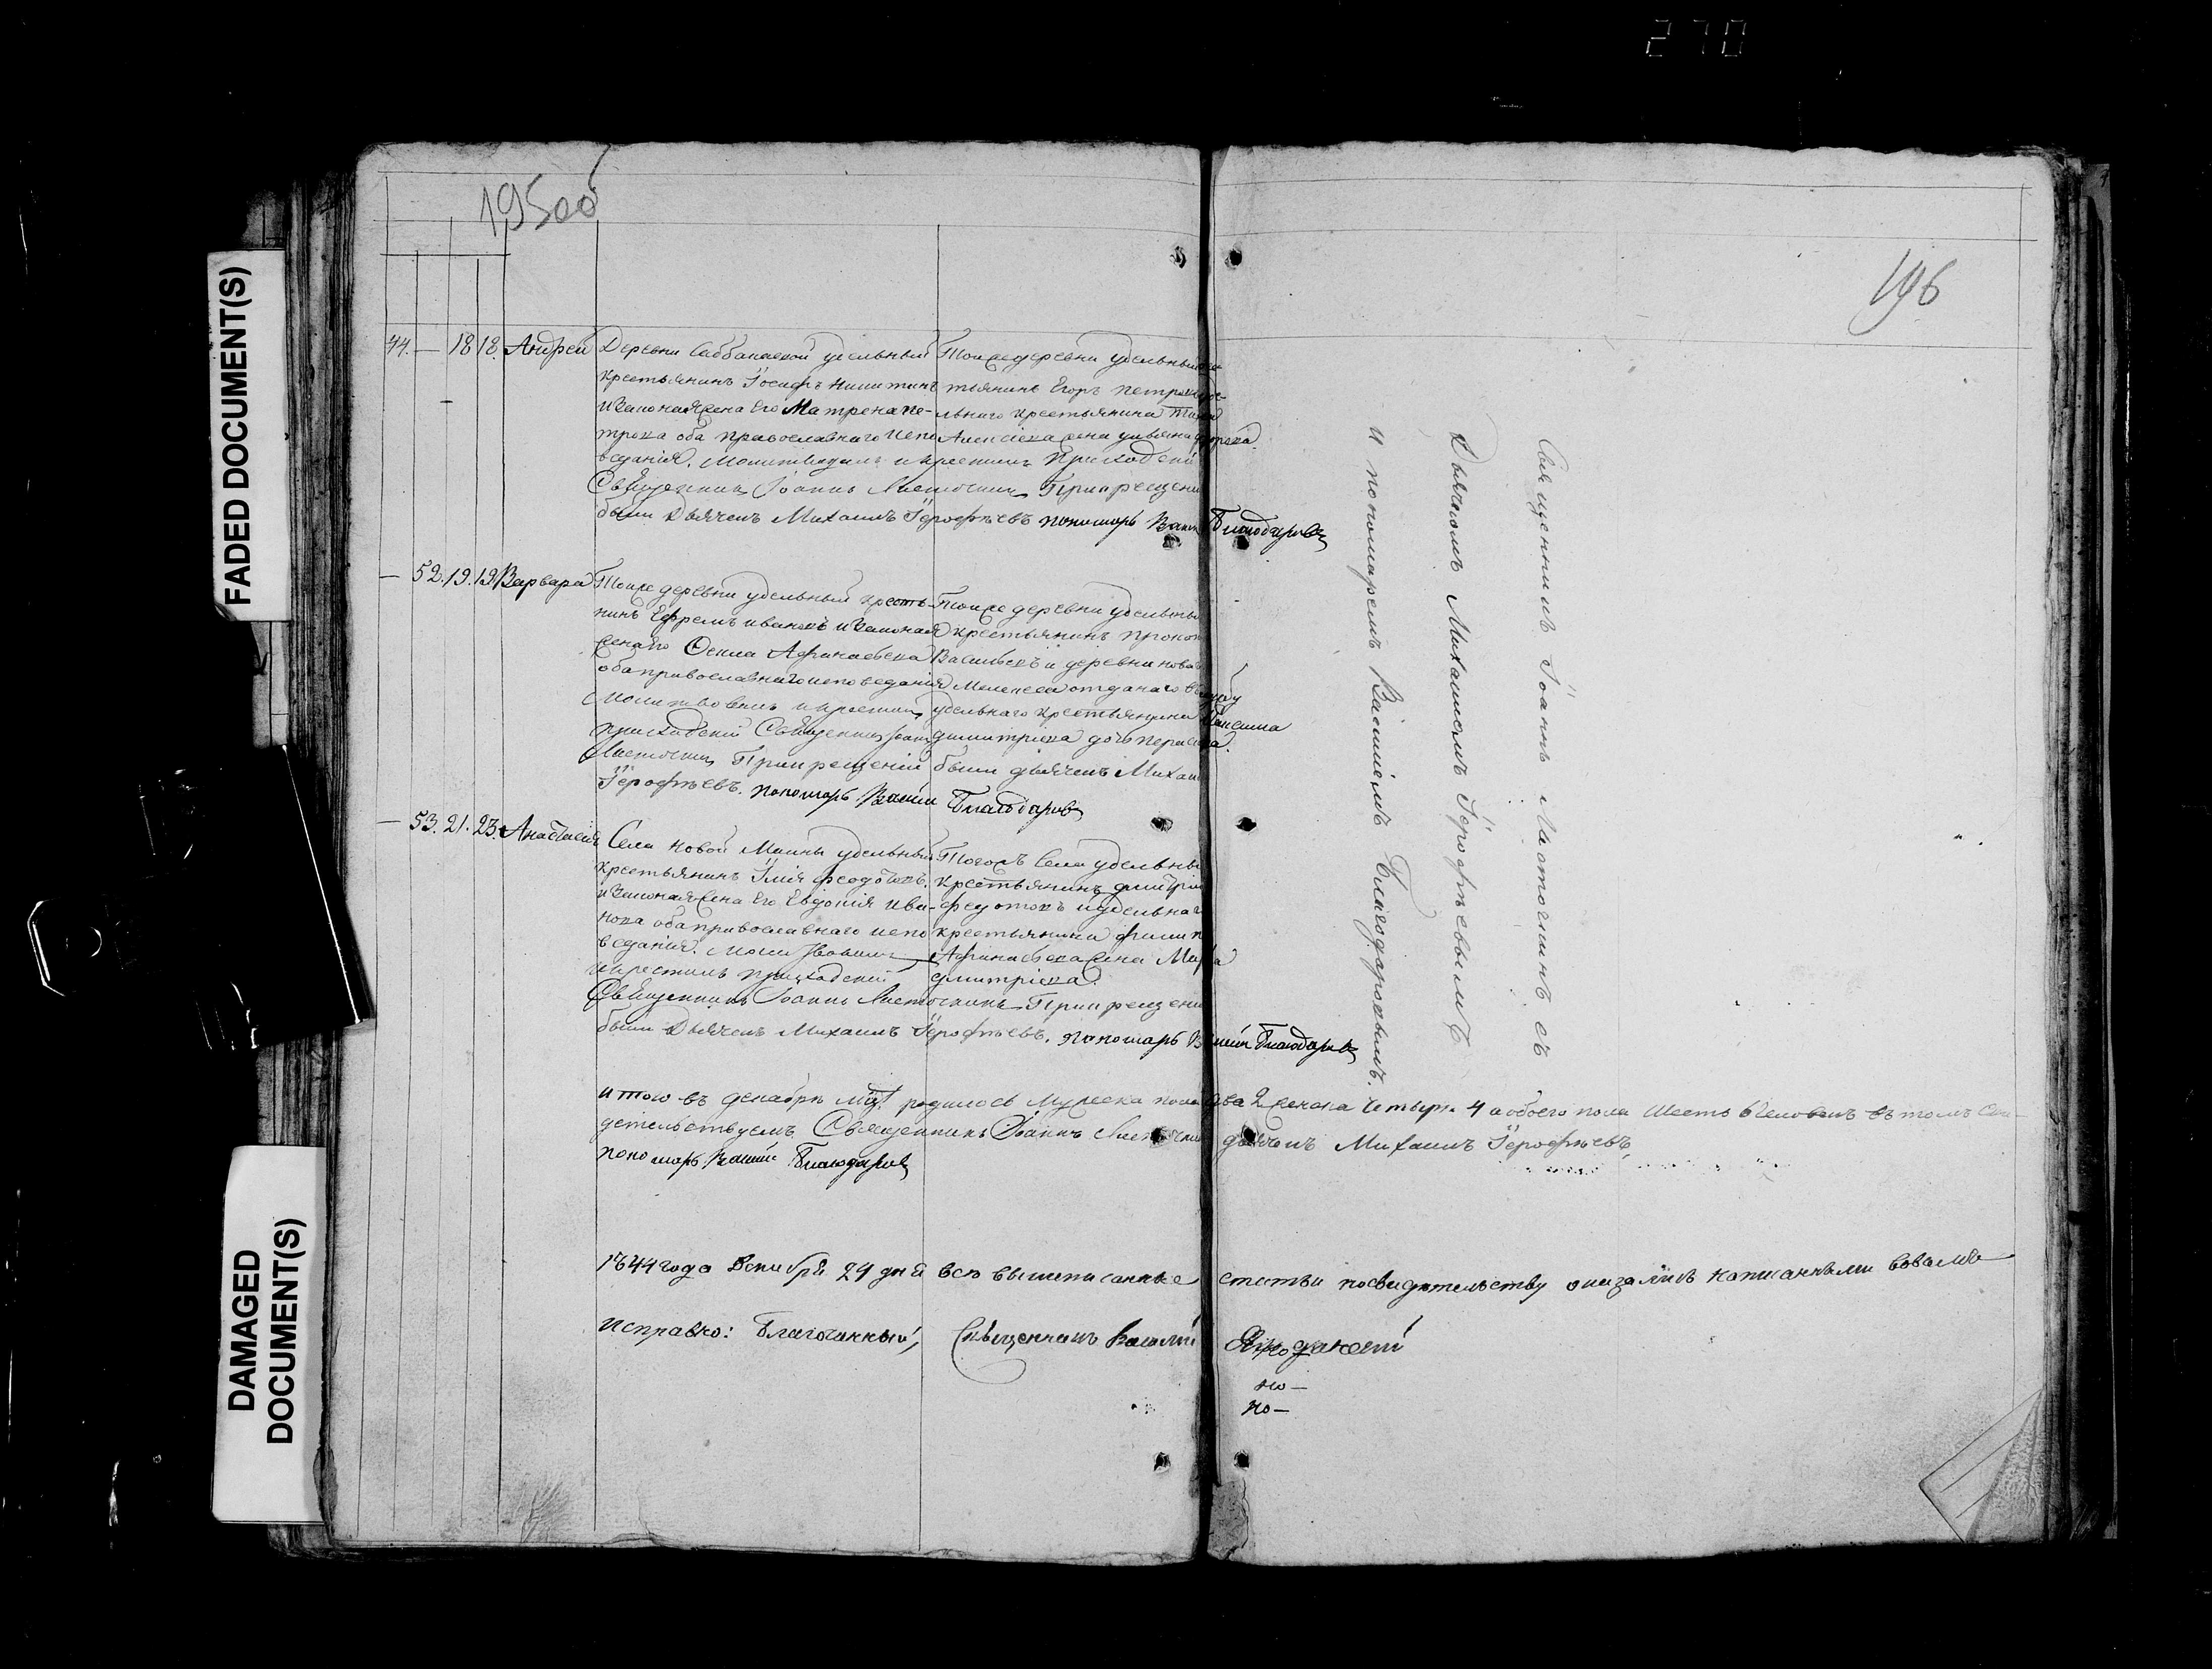 270
195об
196
44. — 18 18. Андрей
Деревни удѣльный
крестьянинъ Іосифъ Никитинъ
и законная жена Его Матрена Пе-
трова оба православнаго испо
вѣданія. Молитвовалъ и крестилъ Приходскій
Священникъ Іоаннъ Ласточкинъ При крещеніи
были Дьячекъ Михаилъ Іерофѣевъ пономарь Василій Благодаровъ
Тойже деревни удѣльный крес
тьянинъ Егоръ Петровъ удѣ-
льнаго крестьянина
Алексѣева жена Ульяна
— 52. 19. 19. Варвара
Тойже деревни удѣльный кресть-
нинъ Ефремъ Ивановъ и законная
жена Его Афанасьева
оба православнаго исповѣданія
Молитвовалъ и крестилъ
приходскій Священникъ Іоаннъ
Ласточкинъ При крещеніи были дьячекъ Михаилъ
Іерофѣевъ. пономарь Василій Благодаровъ
Тойже деревни удѣльный
крестьянинъ
Васильевъ и деревни новой
отданаго въ службу
удѣльнаго крестьянина Максима
Димитріева дочь
— 53. 21. 23. Анастасія
Села Новой Маины удѣльный
крестьянинъ Ілія Феодотовъ.
и законная жена Его Евдокія Ива-
нова оба православнаго испо
вѣданія. Молитвовалъ
и крестилъ приходскій
Священникъ Іоаннъ Ласточкинъ При крещеніи
были Дьячекъ Михаилъ Іерофѣевъ. пономарь Василій Благодаровъ
Тогожъ Села удѣльный
крестьянинъ Дмитрій
Федотовъ и удѣльнаго
крестьянина Филипа
Афанасьева жена Марфа
Дмитріева.
Священникъ Іоаннъ Ласточкинъ съ
Дьячкомъ Михаиломъ Іерофѣевымъ
и пономаремъ Василіемъ Благодаровымъ.
итого въ декабрѣ родилось мужеска пола два 2 женска четыре 4 а обоего пола шесть 6 человекъ въ томъ сви-
детельствуемъ Священникъ Іоаннъ Ласточкинъ дьячокъ Михаилъ Іерофѣевъ
пономарь Василій Благодаровъ
1844 года Декабря 29 дня всѣ вышеписанные статьи по свидѣтельству оказались написанными во всемъ
исправно: Благочинный, Священникъ Василій
но —
но —
FADED DOCUMENT(S)
DAMAGED
DOCUMENT(S)